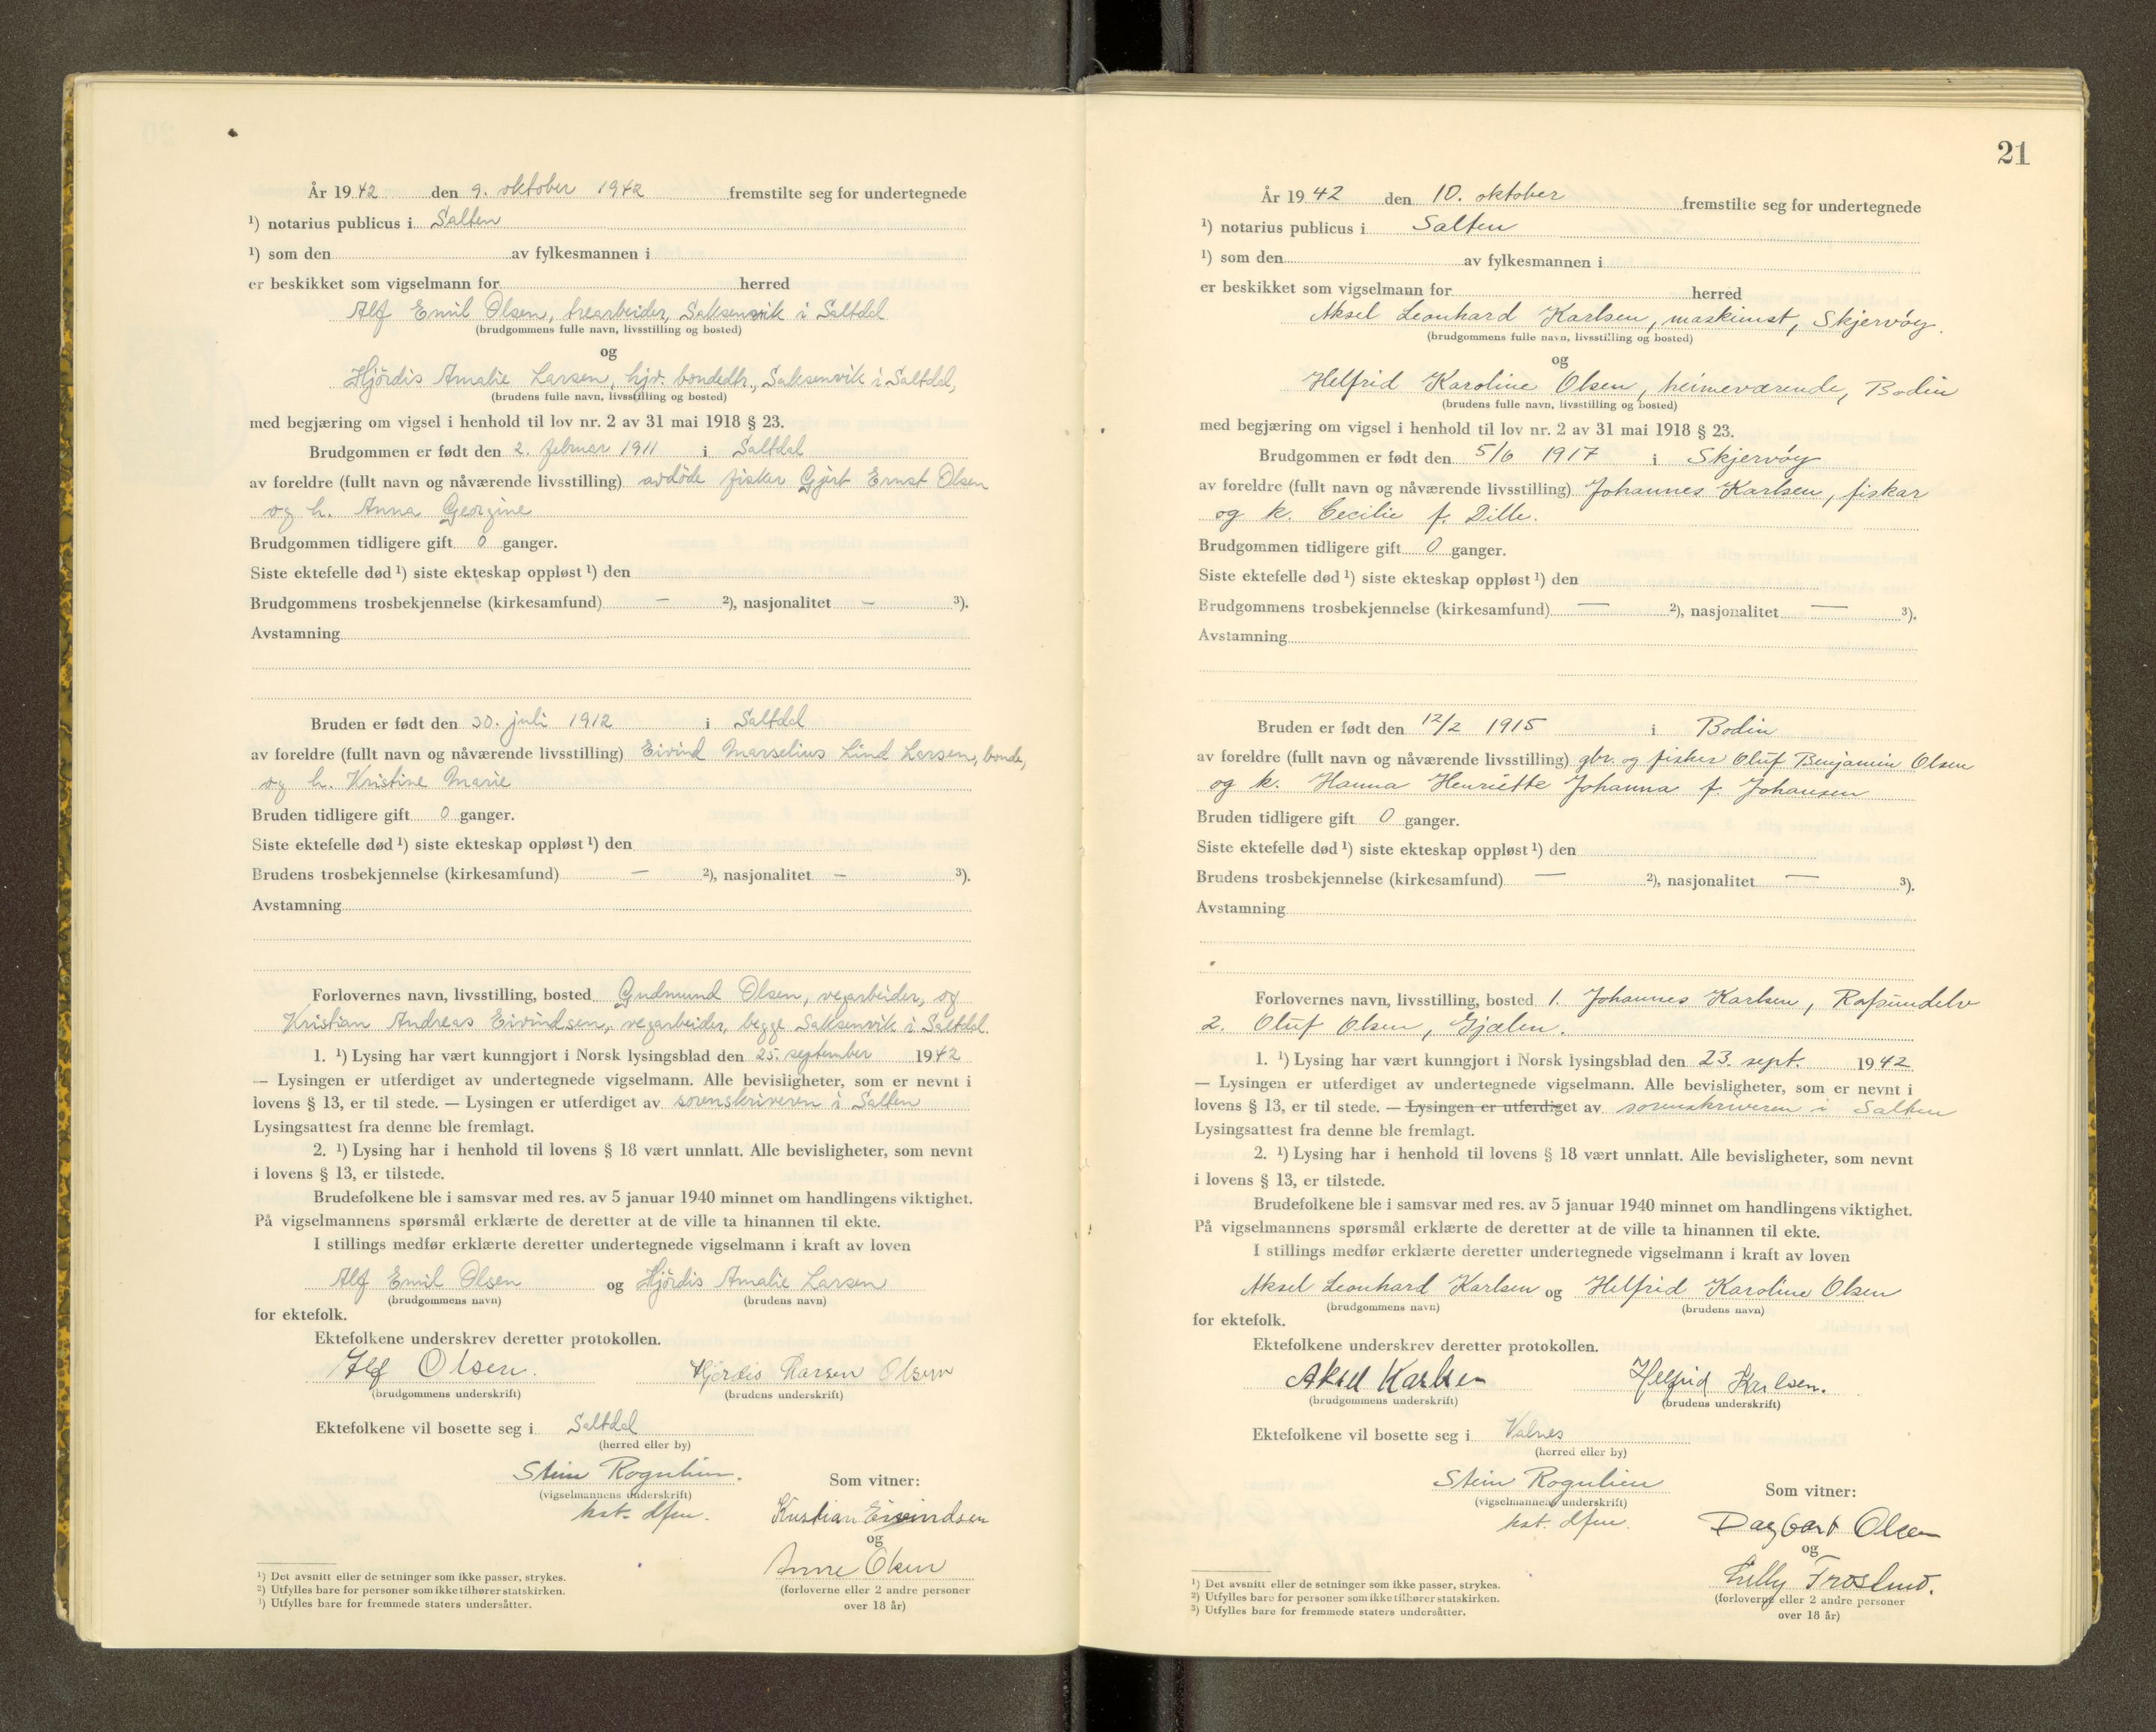 År 1942 den 9. oktober 1942 fremstilte seg for undertegnede
¹) notarius publicus i Salten
¹) som den av fylkesmannen i
er beskikket som vigselmann for herred
Alf Emil Olsen, trearbeider, Saksenvik i Saltdal
(brudgommens fulle navn, livsstilling og bosted)
og
Hjördis Amalie Larsen, hjv. bondedtr., Saksenvik i Saltdal,
(brudens fulle navn, livsstilling og bosted)
med begjæring om vigsel i henhold til lov nr. 2 av 31 mai 1918 § 23.
Brudgommen er født den 2. februar 1911 i Saltdal
av foreldre (fullt navn og nåværende livsstilling) avdöde fisker Gjert Ernst Olsen
og h. Anna Georgine
Brudgommen tidligere gift 0 ganger.
Siste ektefelle død ¹) siste ekteskap oppløst ¹) den
Brudgommens trosbekjennelse (kirkesamfund) — ²), nasjonalitet — ³).
Avstamning
Bruden er født den 30. juli 1912 i Saltdal
av foreldre (fullt navn og nåværende livsstilling) Eivind Marselius Lind Larsen, bonde,
og h. Kristine Marie
Bruden tidligere gift 0 ganger.
Siste ektefelle død ¹) siste ekteskap oppløst ¹) den
Brudens trosbekjennelse (kirkesamfund) — ²), nasjonalitet — ³).
Avstamning
Forlovernes navn, livsstilling, bosted Gudmund Olsen, vegarbeider, og
Kristian Andreas Eivindsen, vegarbeider, begge Saksenvik i Saltdal.
1. ¹) Lysing har vært kunngjort i Norsk lysingsblad den 25. september 1942
— Lysingen er utferdiget av undertegnede vigselmann. Alle bevisligheter, som er nevnt i
lovens § 13, er til stede. — Lysingen er utferdiget av sorenskriveren i Salten
Lysingsattest fra denne ble fremlagt.
2. ¹) Lysing har i henhold til lovens § 18 vært unnlatt. Alle bevisligheter, som nevnt
i lovens § 13, er tilstede.
Brudefolkene ble i samsvar med res. av 5 januar 1940 minnet om handlingens viktighet.
På vigselmannens spørsmål erklærte de deretter at de ville ta hinannen til ekte.
I stillings medfør erklærte deretter undertegnede vigselmann i kraft av loven
Alf Emil Olsen og Hjördis Amalie Larsen
(brudgommens navn) (brudens navn)
for ektefolk.
Ektefolkene underskrev deretter protokollen.
Alf Olsen. Hjördis Larsen Olsen
(brudgommens underskrift) (brudens underskrift)
Ektefolkene vil bosette seg i Saltdal
(herred eller by)
Stein Rognlien.
(vigselmannens underskrift)
kst. dfm.
Som vitner:
Kristian Eivindsen
og
Anne Olsen
(forloverne eller 2 andre personer
over 18 år)
¹) Det avsnitt eller de setninger som ikke passer, strykes.
²) Utfylles bare for personer som ikke tilhører statskirken.
³) Utfylles bare for fremmede staters undersåtter.
21
År 1942 den 10. oktober fremstilte seg for undertegnede
¹) notarius publicus i Salten
¹) som den av fylkesmannen i
er beskikket som vigselmann for herred
Aksel Leonhard Karlsen, maskinist, Skjervøy.
(brudgommens fulle navn, livsstilling og bosted)
og
Helfrid Karoline Olsen, heimeværende, Bodin
(brudens fulle navn, livsstilling og bosted)
med begjæring om vigsel i henhold til lov nr. 2 av 31 mai 1918 § 23.
Brudgommen er født den 5/6 1917 i Skjervøy
av foreldre (fullt navn og nåværende livsstilling) Johannes Karlsen, fiskar
og k. Cecilie f. Dille.
Brudgommen tidligere gift 0 ganger.
Siste ektefelle død ¹) siste ekteskap oppløst ¹) den
Brudgommens trosbekjennelse (kirkesamfund) — ²), nasjonalitet — ³).
Avstamning
Bruden er født den 12/2 1915 i Bodin
av foreldre (fullt navn og nåværende livsstilling) gbr. og fisker Oluf Benjamin Olsen
og k. Hanna Henriette Johanna f. Johansen
Bruden tidligere gift 0 ganger.
Siste ektefelle død ¹) siste ekteskap oppløst ¹) den
Brudens trosbekjennelse (kirkesamfund) — ²), nasjonalitet — ³).
Avstamning
Forlovernes navn, livsstilling, bosted 1. Johannes Karlsen,
2. Oluf Olsen, Gjælen.
1. ¹) Lysing har vært kunngjort i Norsk lysingsblad den 23. sept. 1942
— Lysingen er utferdiget av undertegnede vigselmann. Alle bevisligheter, som er nevnt i
lovens § 13, er til stede. — Lysingen er utferdiget av sorenskriveren i Salten
Lysingsattest fra denne ble fremlagt.
2. ¹) Lysing har i henhold til lovens § 18 vært unnlatt. Alle bevisligheter, som nevnt
i lovens § 13, er tilstede.
Brudefolkene ble i samsvar med res. av 5 januar 1940 minnet om handlingens viktighet.
På vigselmannens spørsmål erklærte de deretter at de ville ta hinannen til ekte.
I stillings medfør erklærte deretter undertegnede vigselmann i kraft av loven
Aksel Leonhard Karlsen og Helfrid Karoline Olsen
(brudgommens navn) (brudens navn)
for ektefolk.
Ektefolkene underskrev deretter protokollen.
Aksel Karlsen Helfrid Karlsen.
(brudgommens underskrift) (brudens underskrift)
Ektefolkene vil bosette seg i Valnes
(herred eller by)
Stein Rognlien
(vigselmannens underskrift)
kst. dfm.
Som vitner:
Dagbart Olsen
og
Lilly Troslund.
(forloverne eller 2 andre personer
over 18 år)
¹) Det avsnitt eller de setninger som ikke passer, strykes.
²) Utfylles bare for personer som ikke tilhører statskirken.
³) Utfylles bare for fremmede staters undersåtter.